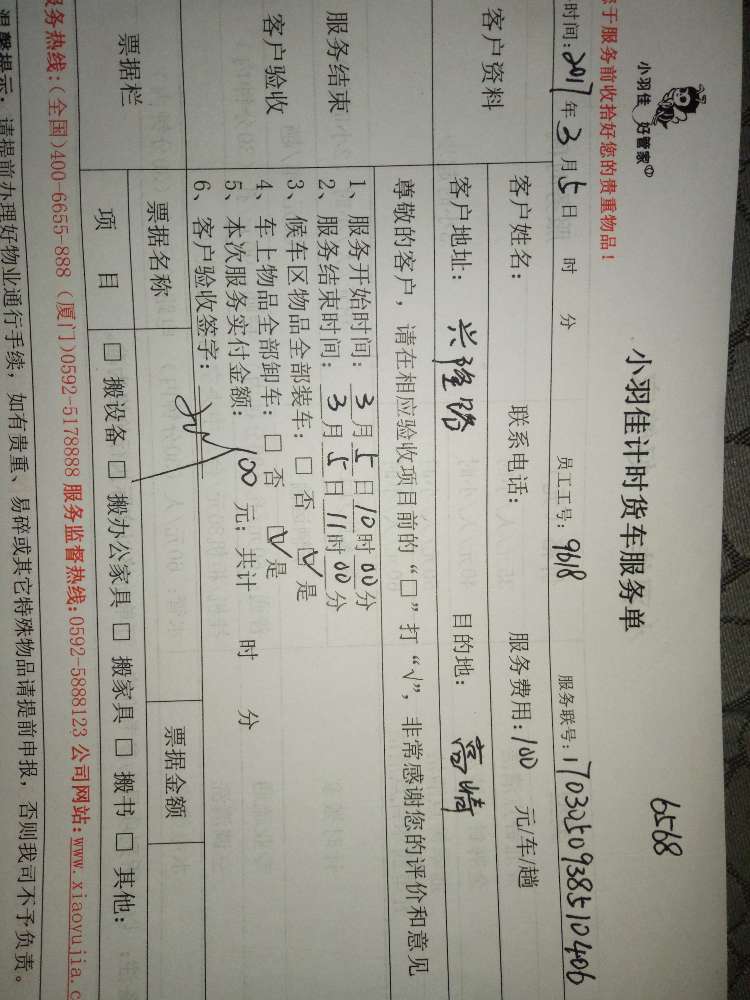 6568
小羽佳 好管家
小羽佳计时货车服务单
于服务前收拾好您的贵重物品！
时间：2017年3月5日 时 分 员工工号：9618 服务联号：170325093851 0406
客户资料
客户姓名： 联系电话： 服务费用：100 元/车/趟
客户地址：兴隆路 目的地：高崎
尊敬的客户，请在相应验收项目前的“□”打“√”，非常感谢您的评价和意见
服务结束
客户验收
1、服务开始时间：3月5日10时00分
2、服务结束时间：3月5日11时00分
3、候车区物品全部装车：□否 ☑是
4、车上物品全部卸车：□否 ☑是
5、本次服务实付金额：100元；共计 时 分
6、客户验收签字：
票据栏
票据名称 票据金额
项目 □ 搬设备 □ 搬办公家具 □ 搬家具 □ 搬书 □ 其他：
服务热线：(全国)400-6655-888 (厦门)0592-5178888 服务监督热线:0592-5888123 公司网站:www.xiaoyujia.c
温馨提示：请提前办理好物业通行手续，如有贵重、易碎或其它特殊物品请提前申报，否则我司不予负责。